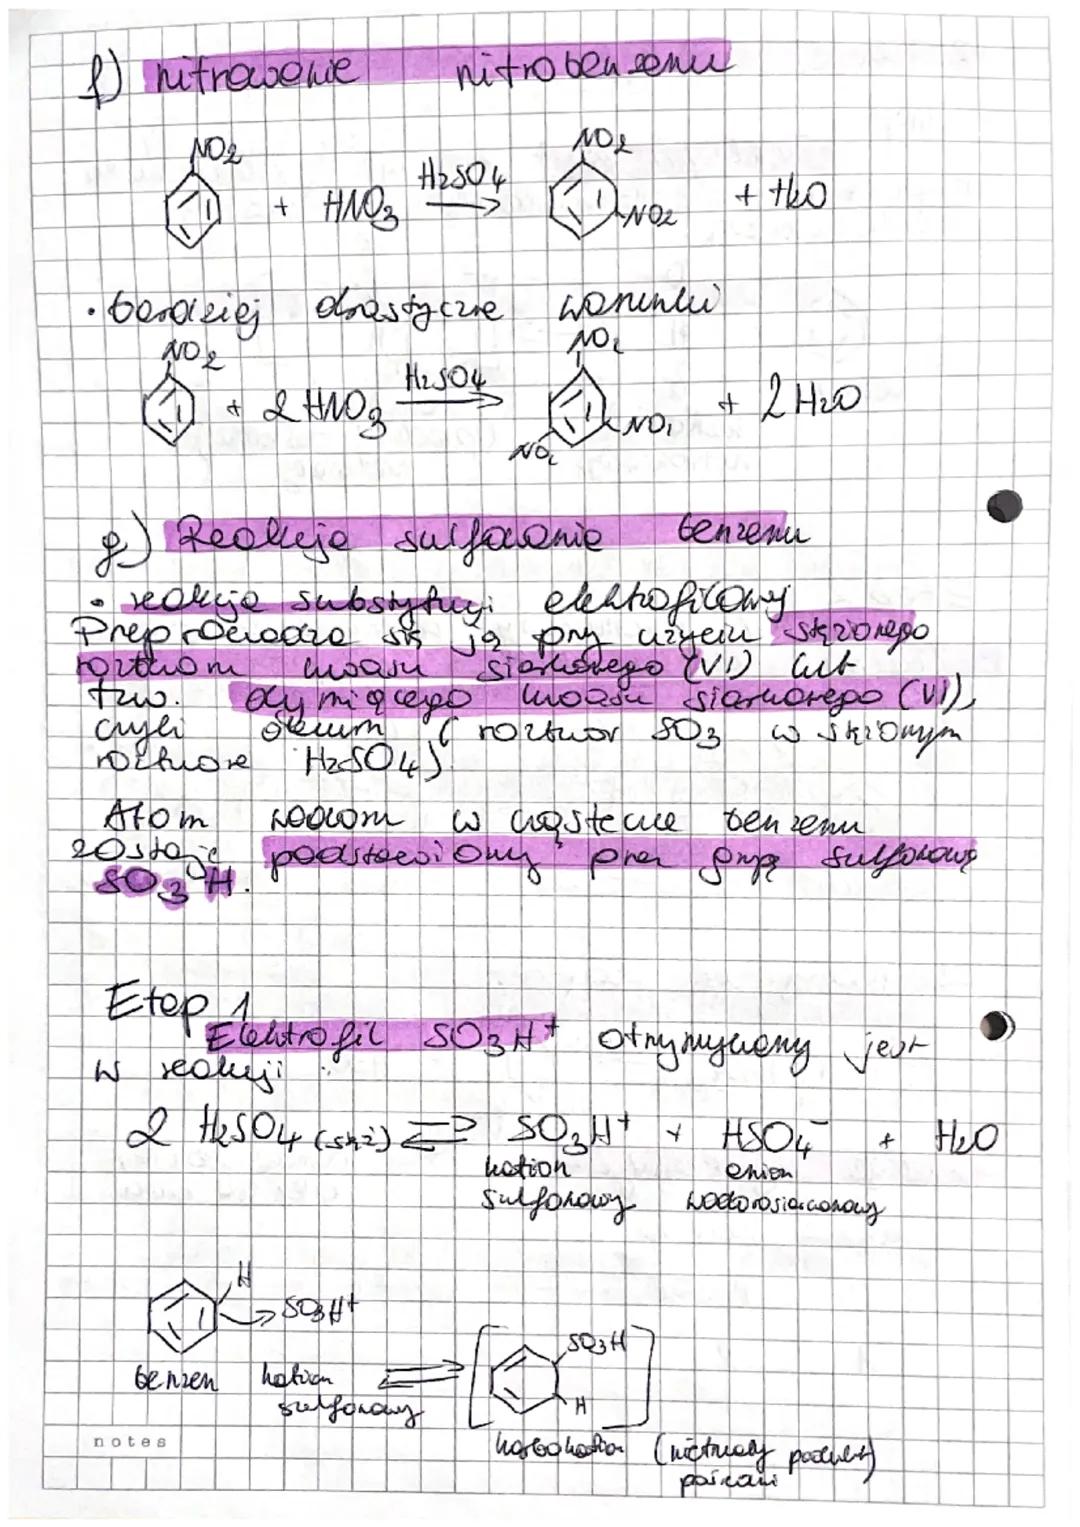 f) nitrowanie nitrobenzenu
NO2 NO2
+ HNO3 H2SO4 → NO2 + H2O
• bardziej drastyczne warunki
NO2 NO2
+ 2 HNO3 H2SO4 → NO2 + 2 H2O
NO2
g) Reakcja sulfowania benzenu
• reakcja substytucji elektrofilowej
Przeprowadza się ją przy użyciu stężonego
roztworu kwasu siarkowego (VI) lub
tzw. dymiącego kwasu siarkowego (VI),
czyli oleum (roztwór SO3 w stężonym
roztworze H2SO4).
Atom wodoru w cząsteczce benzenu
zostaje podstawiony przez grupę sulfonową
SO3H.
Etap 1
Elektrofil SO3H+ otrzymywany jest
w reakcji :
2 H2SO4 (stęż) ⇌ SO3H+ + HSO4- + H2O
kation anion
sulfonowy wodorosiarczanowy
H
SO3H+
SO3H
benzen kation ⇌ H
sulfonowy
karbokation (nietrwały produkt
notes
pośredni